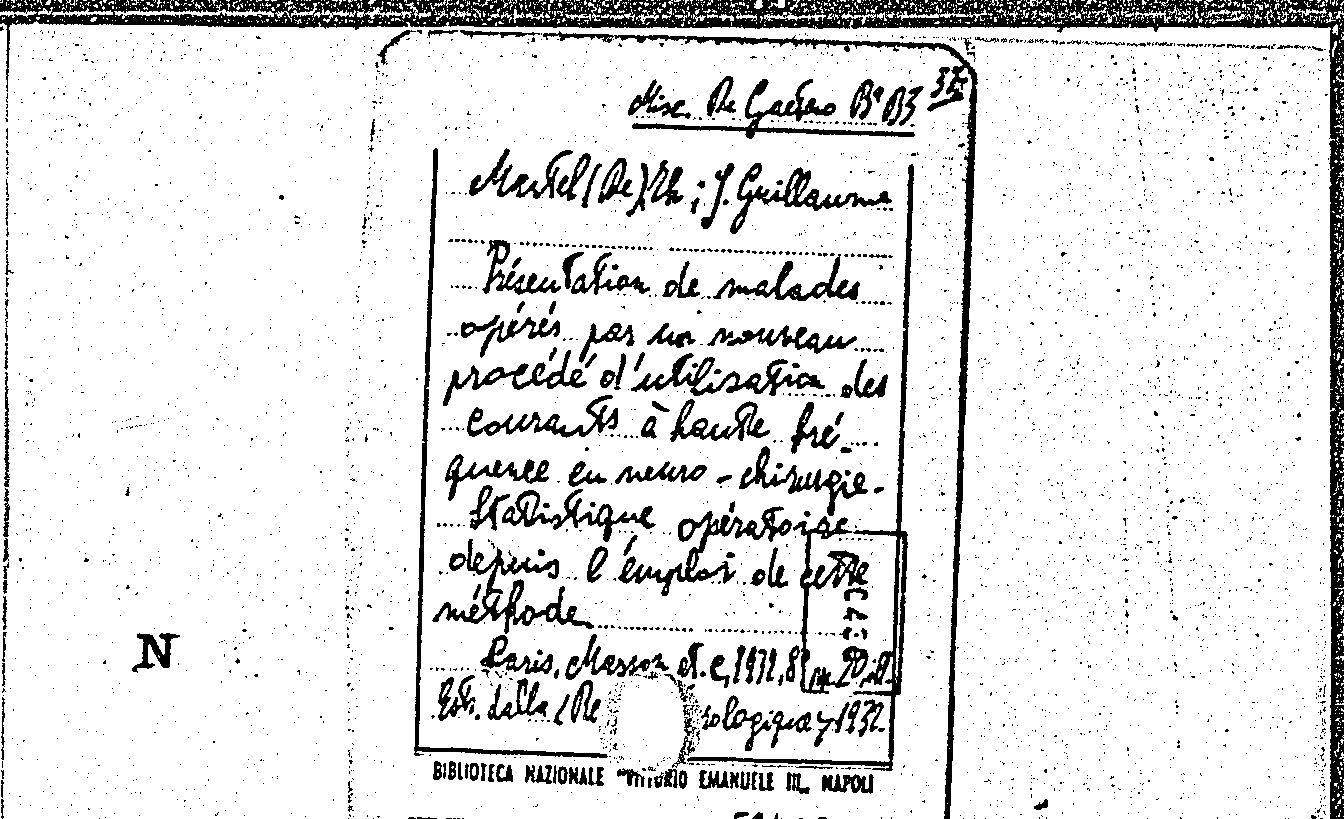 Misc. De Gaetano Bª B3
37
Martel (De) Th ; J. Guillaume
Présentation de malades
opérés par un nouveau
procédé d'utilisation des
courants à haute fré-
quence en neuro-chirurgie.
Statistique opératoire
depuis l'émploi de cette
méthode.
Paris, Masson et. C, 1932, 8º
Estr. dalla (Re rologique, 1932.
BIBLIOTECA NAZIONALE "VITTORIO EMANUELE III„ NAPOLI
N